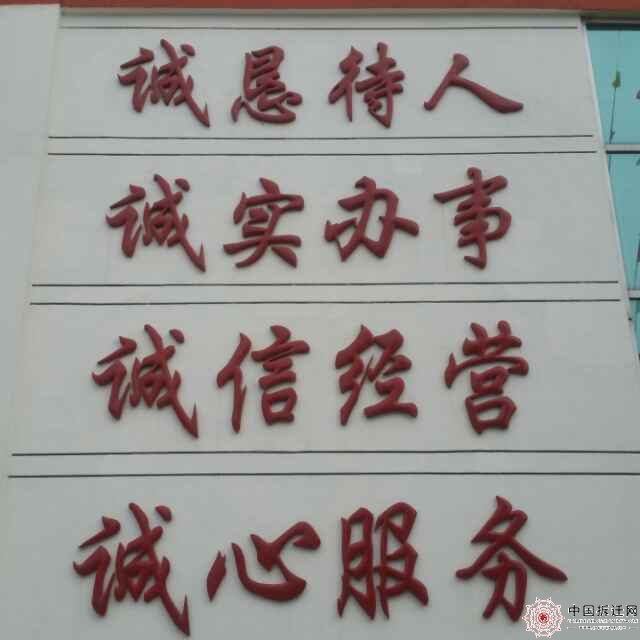 诚恳待人
诚实办事
诚信经营
诚心服务
中国拆迁网